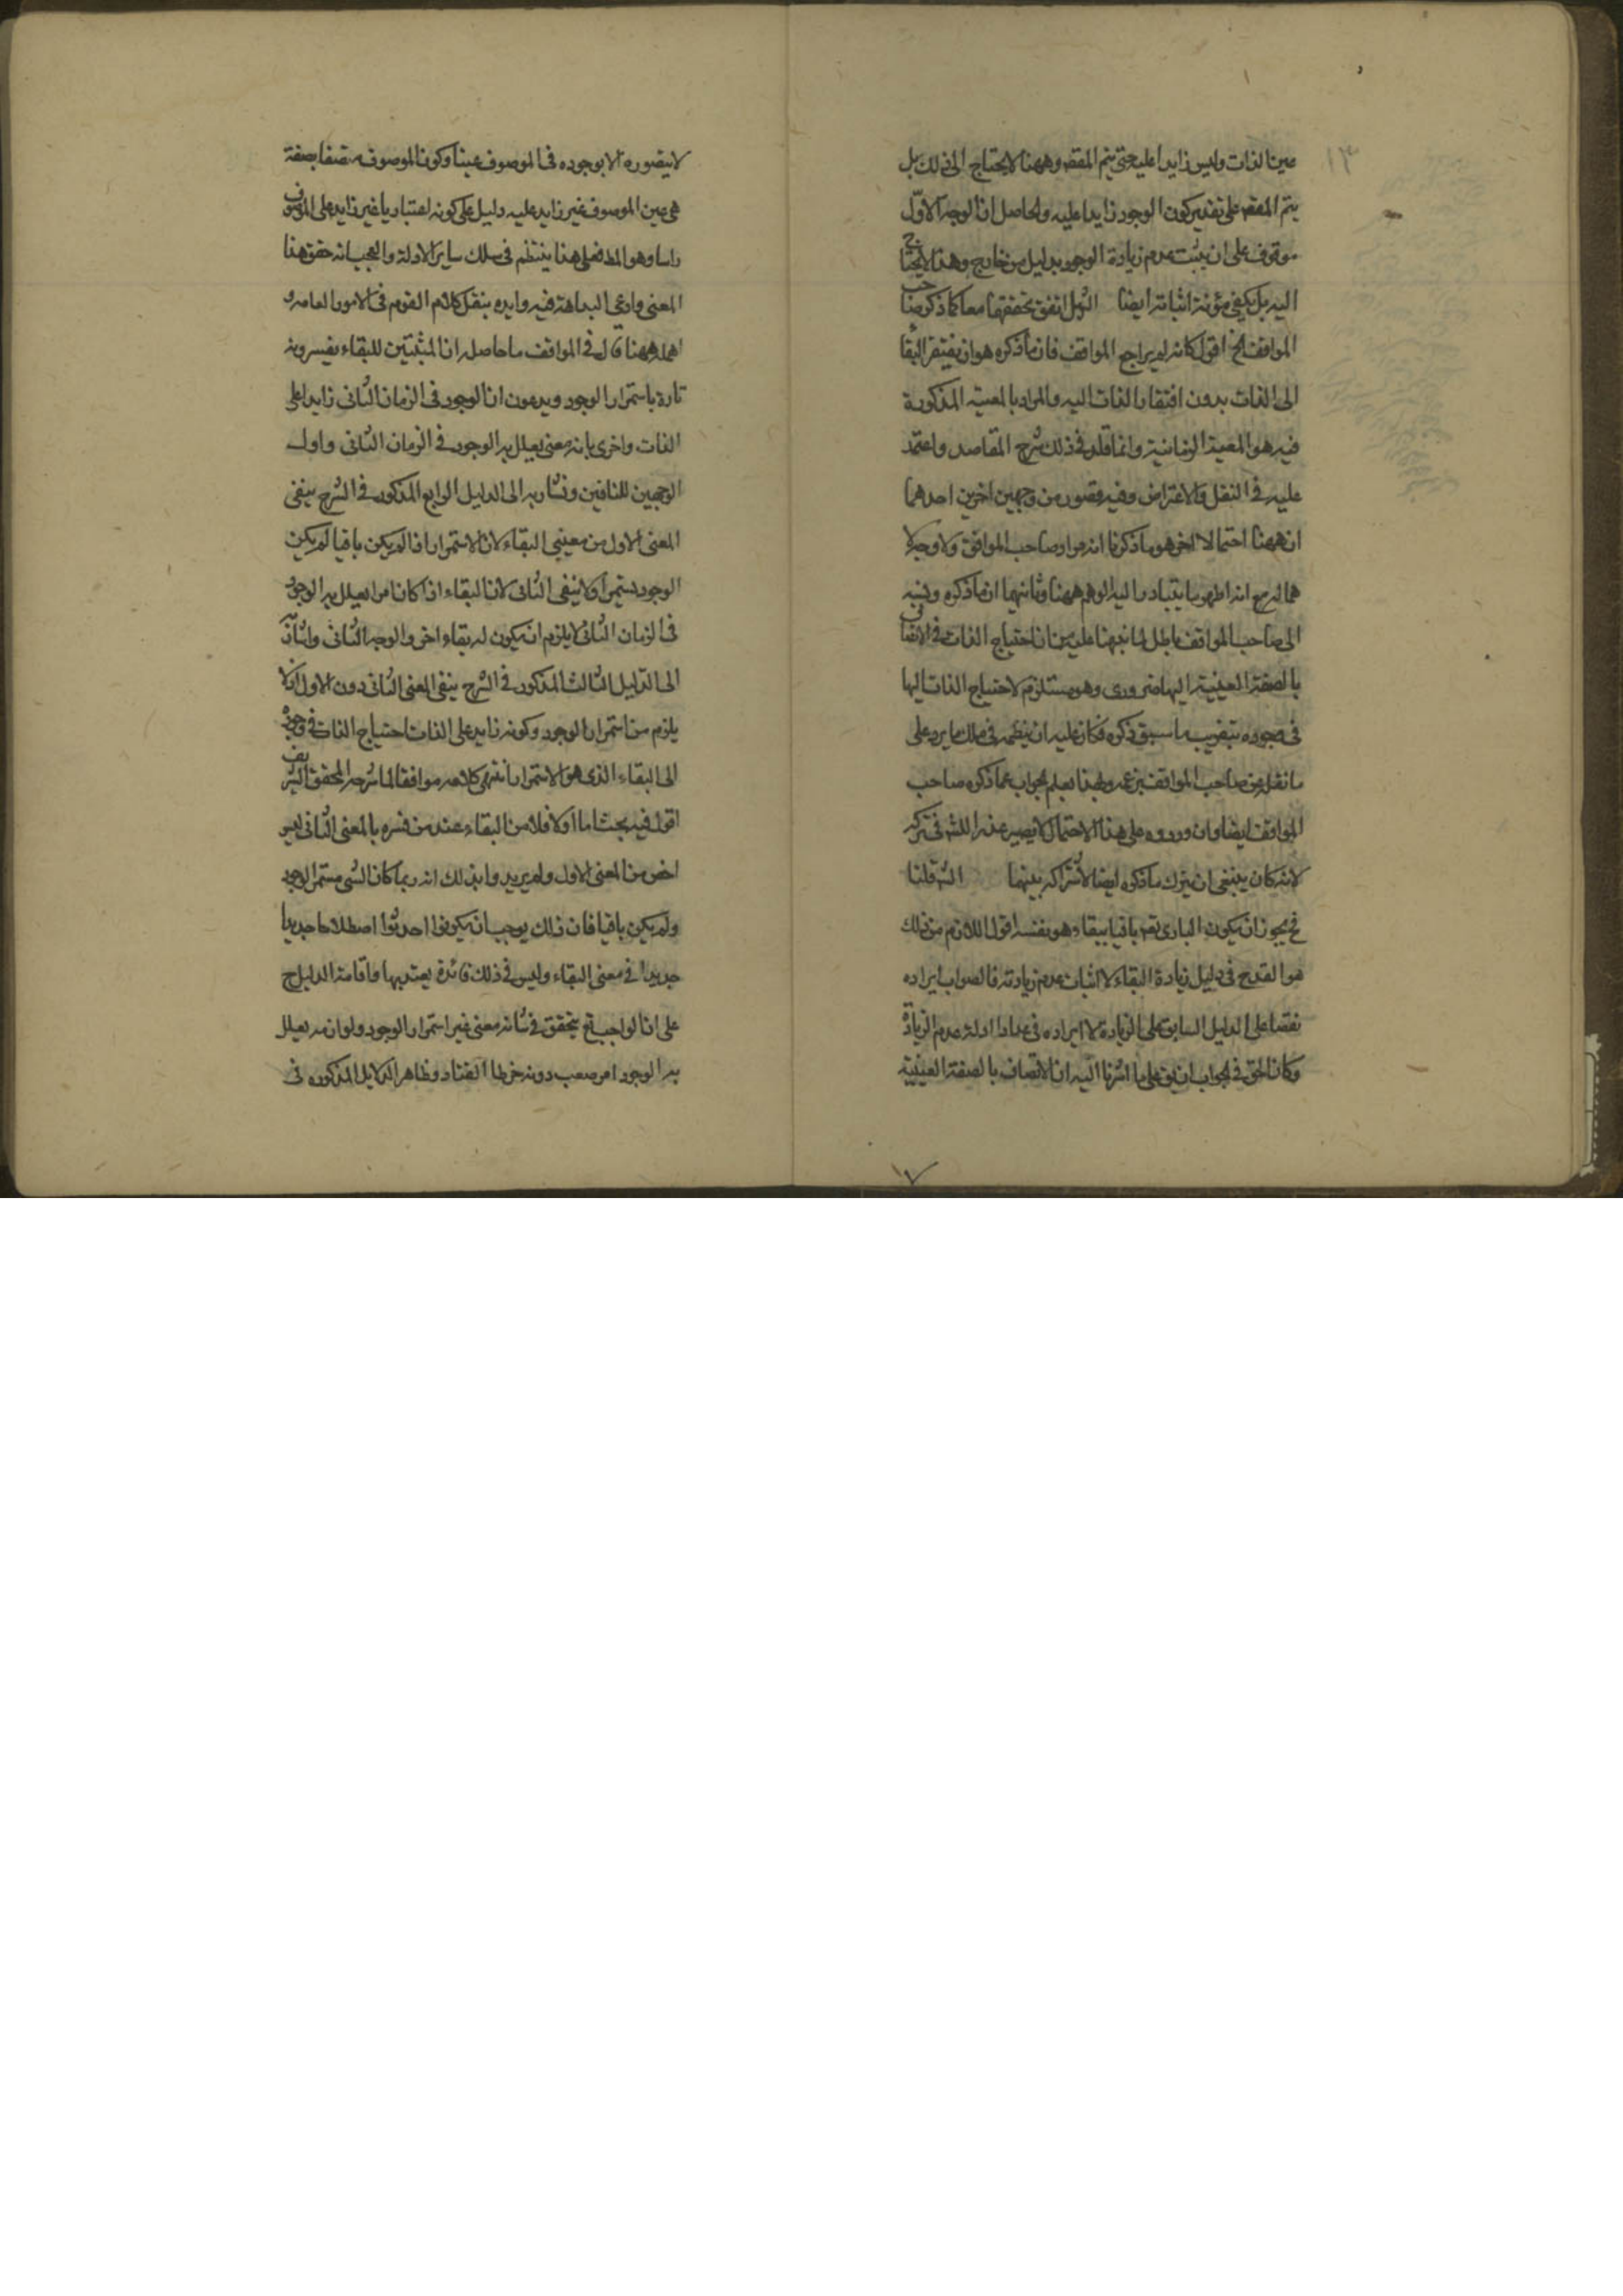 ١٣
عين الذات وليس زايدا عليه حتى يتم المقصد وههنا لا يحتاج الى ذلك بل
يتم المقصد على تقدير كون الوجود زايدا عليه والحاصل ان الوجه الاول
موقوف على ان يثبت عدم زيادة الوجود بدليل من خارج وهذا لا يحتاج
اليه بل يكفى مؤنة اثباته ايضا الش بل اتفق تحققهما معا كما ذكر صاحب
المواقف الخ اقول كانه لم يراجع المواقف فان ما ذكره هو ان يفتقر البقاء
الى الذات بدون افتقار الذات اليه والمراد بالمعية المذكورة
فيه هو المعية الزمانية وانما قلد فى ذلك شرح المقاصد واعتمد
عليه فى النقل والاعتراض وفيه قصور من وجهين اخرين احدهما
ان ههنا احتمالا اخر هو ما ذكرنا انه مراد صاحب المواقف ولا وجه لا
هماله مع انه اظهر ما يتبادر اليه الوهم ههنا وثانيهما ان ما ذكره ونسبه
الى صاحب المواقف باطل لما نبهنا عليه من ان احتياج الذات فى الاتصاف
بالصفة العينية اليها ضرورى وهو مستلزم لاحتياج الذات اليها
فى وجوده بتقريب ما سبق ذكره فكان عليه ان ينظمه فى سلك ما يرد على
ما نقل من صاحب المواقف بزعمه وبهذا يعلم الجواب عما ذكره صاحب
المواقف ايضا وان وروده على هذا الاحتمال لا يصير عذرا للش فى تركه
لانه كان ينبغى ان يترك ما ذكره ايضا لاشتراكه بينهما الش قلنا
فح يجوز ان يكون البارى تعه باقيا ببقاء هو نفسه اقول اللازم من ذلك
هو القدح فى دليل زيادة البقاء لا اثبات عدم زيادته فالصواب ايراده
نقضا على الدليل السابق على الزيادة لا ايراده فى عداد ادلة عدم الزيادة
وكان الحق فى الجواب ان يق على ما اشرنا اليه ان الاتصاف بالصفة العينية
١٧
لا يتصوره الا بوجوده فى الموصوف عينا وكون الموصوف متصفا بصفة
هى عين الموصوف غير زايد عليه دليل على كونه اعتباريا غير زايد على الموصوف
راسا وهو المط فعلى هذا ينتظم فى سلك ساير الادلة والعجب انه حقق هذا
المعنى وادعى البداهة فيه وايده بنقل كلام القوم فى الامور العامه و
اهمله ههنا قال فى المواقف ما حاصله ان المثبتين للبقاء يفسرونه
تارة باستمرار الوجود ويدعون ان الوجود فى الزمان الثانى زايد على
الذات واخرى بانه معنى يعلل به الوجود فى الزمان الثانى واول
الوجهين للنافين ونشار به الى الدليل الرابع المذكور فى الشرح ينفى
المعنى الاول من معينى البقاء لان الاستمرار اذا لم يكن باقيا لم يكن
الوجود مستمرا ولا ينفى الثانى لان البقاء اذا كان امرا يعلل به الوجود
فى الزمان الثانى لا يلزم ان يكون له بقاء اخر والوجه الثانى واشارته
الى الدليل الثالث المذكور فى الشرح ينفى المعنى الثانى دون الاول اذ لا
يلزم من استمرار الوجود وكونه زايد على الذات احتياج الذات فى وجوده
الى البقاء الذى هو الاستمرار انتهى كلامه موافقا لما شرحه المحقق الشريف
اقول فيه بحث اما اولا فلان البقاء عند من فسره بالمعنى الثانى ليس
اخص من المعنى الاول ولم يريدوا بذلك انه ربما كان الشى مستمر الوجود
ولم يكن باقيا فان ذلك يوجب ان يكونوا احدثوا اصطلاحا جديدا
جديدا فى معنى البقاء وليس فى ذلك فائدة يعتد بها واقامة الدليل ح
على ان الواجب تع يتحقق فى شانه معنى غير استمرار الوجود ولو انه يعلل
به الوجود امر صعب دونه خرط القتاد وظاهر الدلايل المذكوره فى